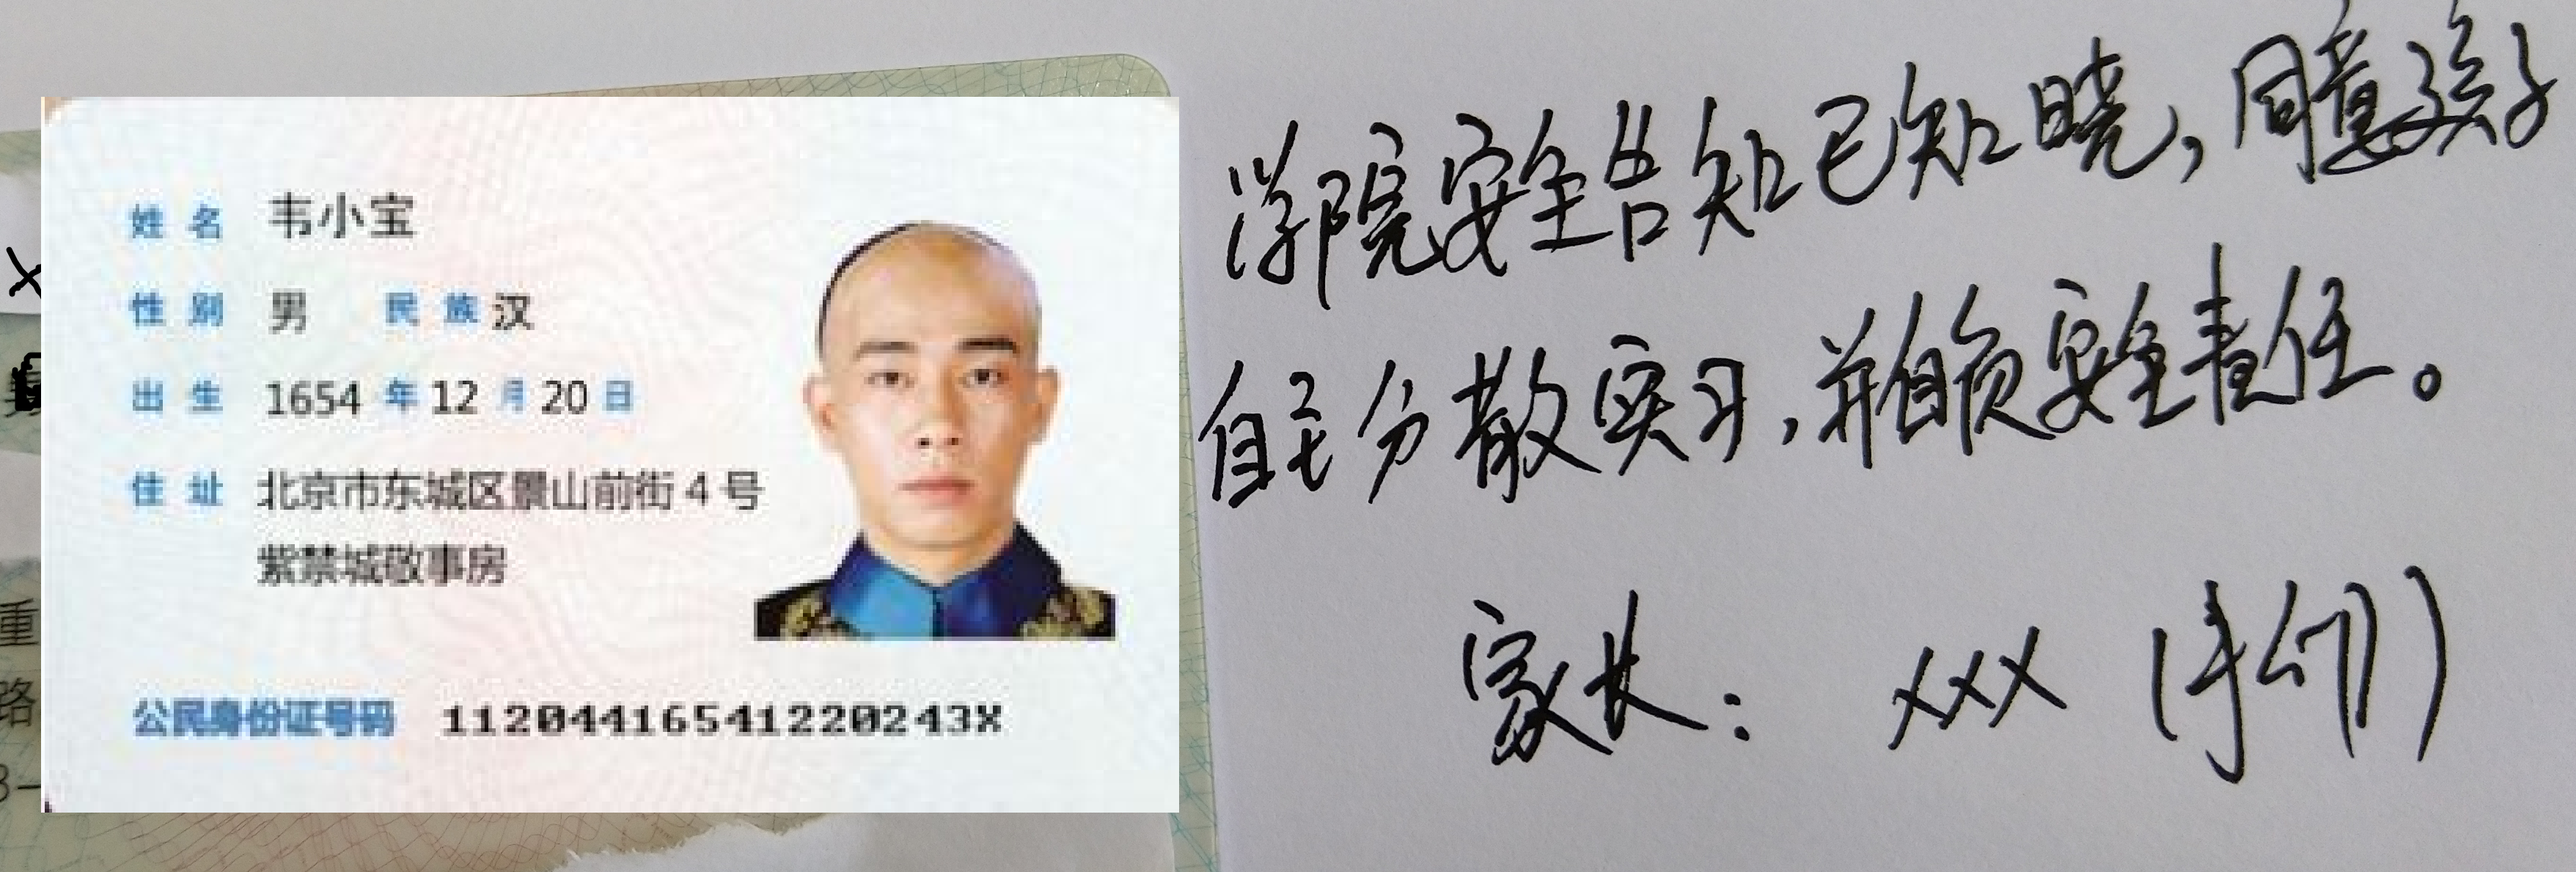 姓名 韦小宝
性别 男 民族 汉
出生 1654 年 12 月 20 日
住址 北京市东城区景山前街 4 号
紫禁城敬事房
公民身份证号码 11204416541220243X
学院安全告知已知晓，同意孩子
自主分散实习，并自负安全责任。
家长： xxx （手印）
重
路